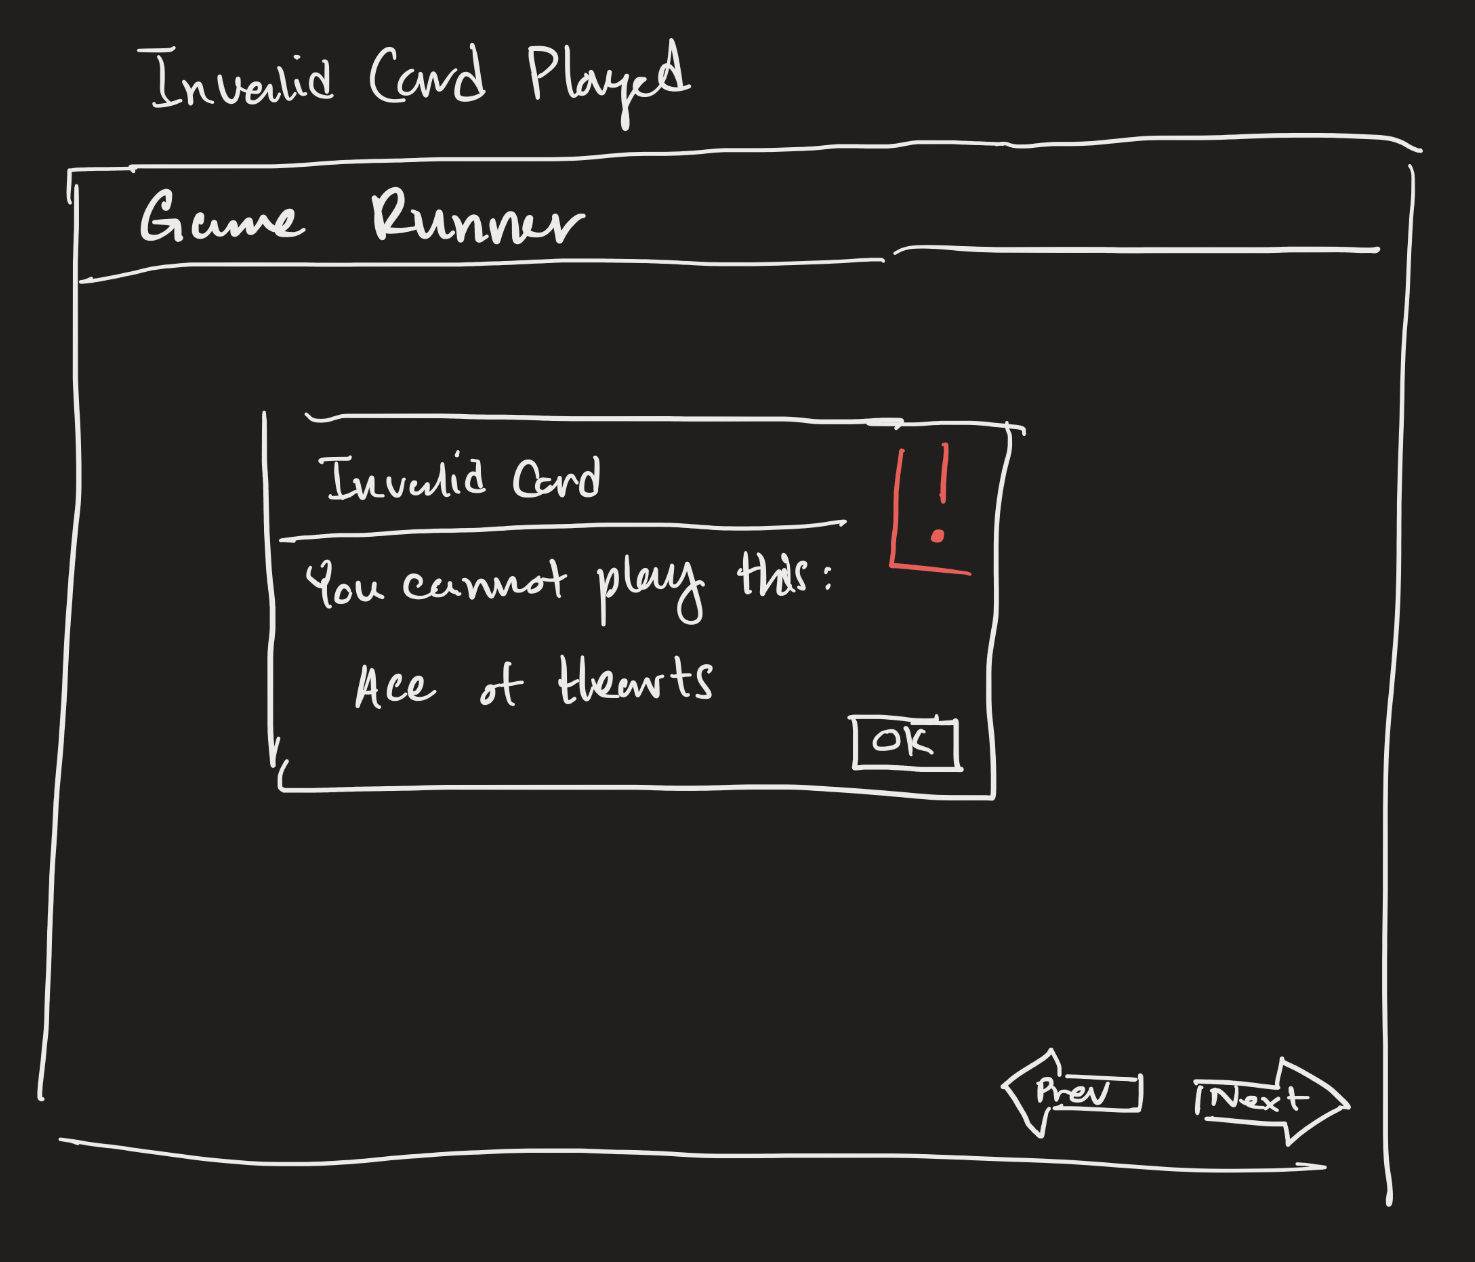 Invalid Card Played
Game Runner
Invalid Card
!
You cannot play this:
Ace of Hearts
OK
Prev
Next